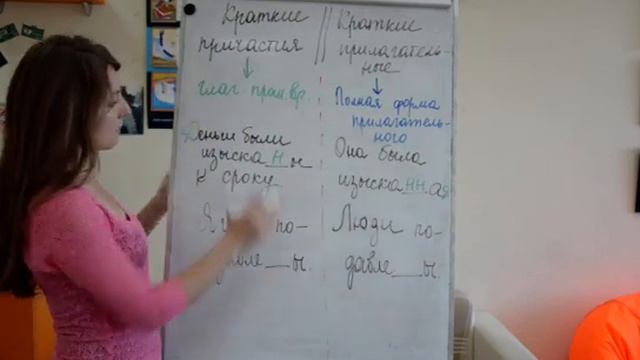 Краткие
причастия
глаг прош.вр.
Деньги были
изыска н ы
к сроку
Я
по-
давле__ы.
Краткие
прилагатель-
ные
Полная форма
прилагатель-
ного
Она была
изыска нн ая
Люди по-
давле__ы.